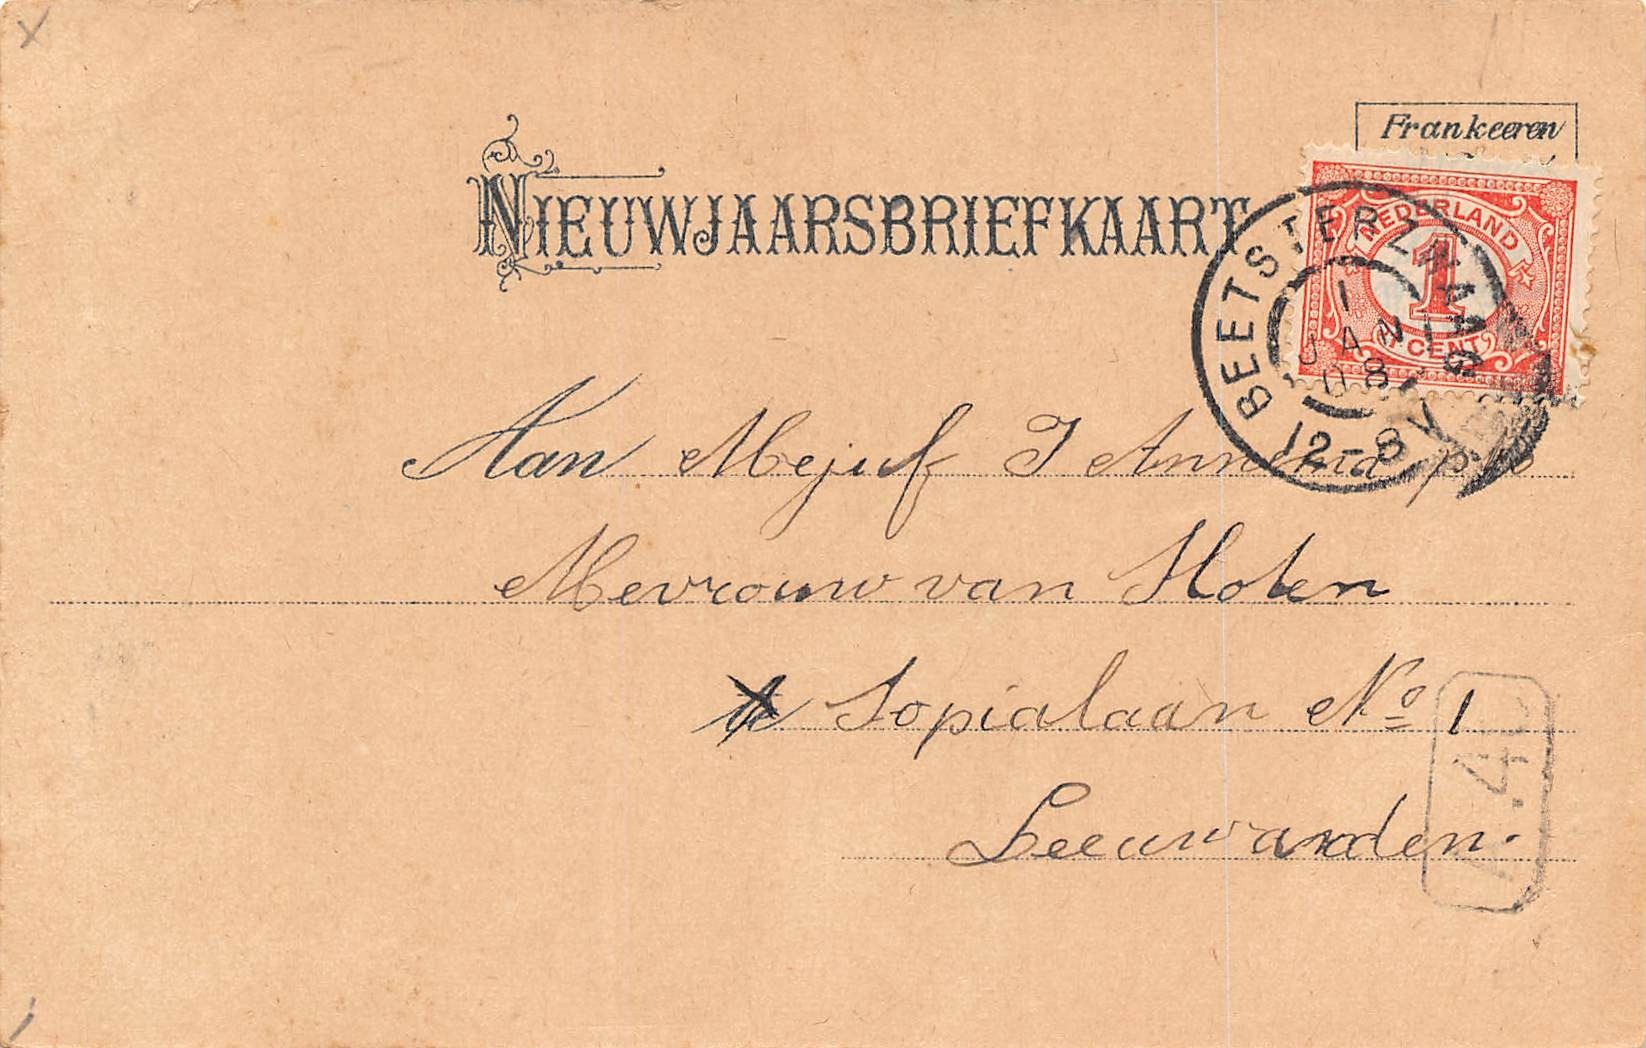 Frankeeren
NIEUWJAARSBRIEFKAART
NEDERLAND
1
1 CENT
BEETSTERZWAAG
1
JAN
08
12-8V
Aan Mejuf J Annema p/a
Mevrouw van Holen
Sopialaan No 1
Leeuwarden.